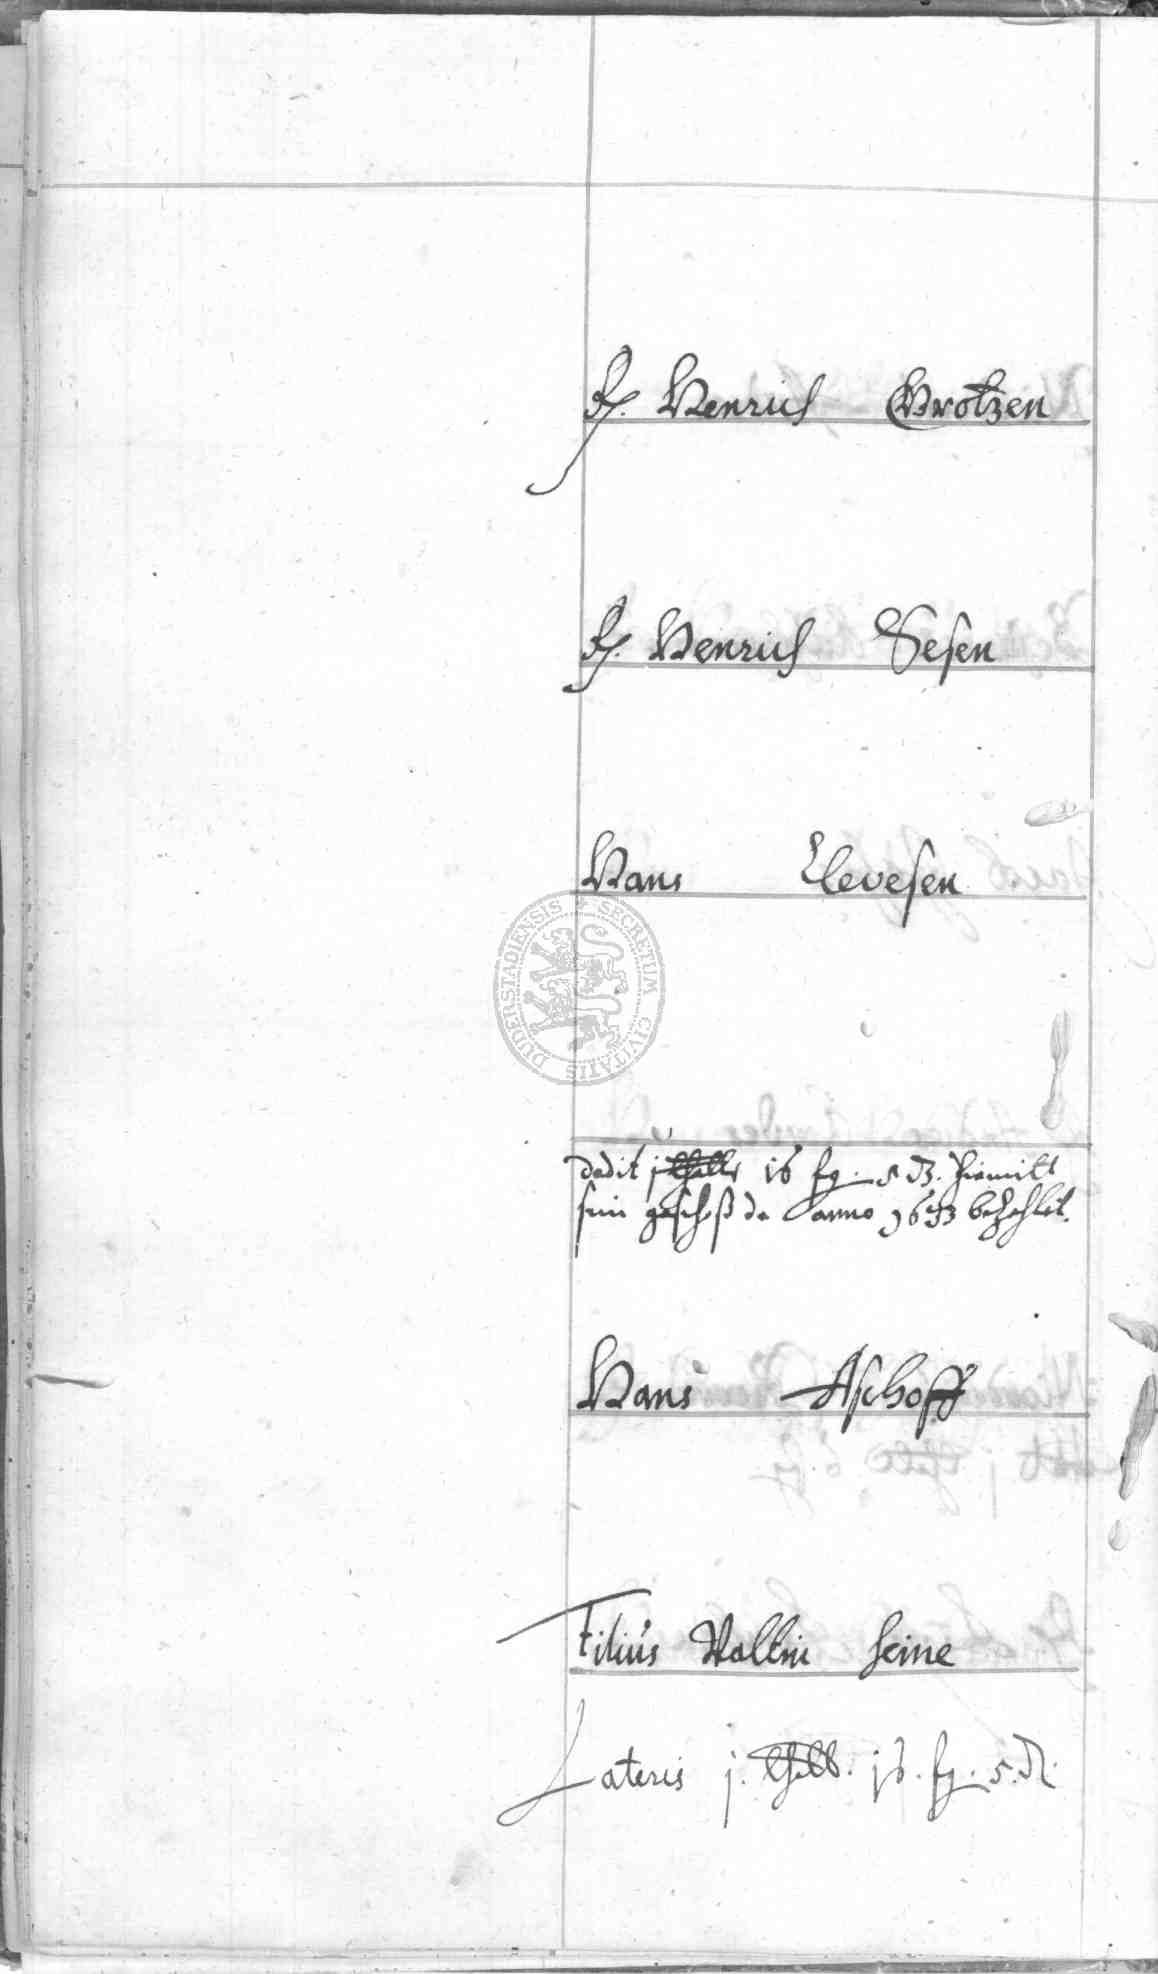 H. Henrich Grotzen
H. Henrich Sesen
Hans Clevesen
DUDERSTADIENSIS SECRETUM CIVITATIS
dedit j thall 16 sg. 5 ₰. hiemitt
sein geschoß de anno 1693 bezahlet.
Hans Aschoff
Filius Valtin Heine
Lateris j. thall. 16. sg. 5. ₰.